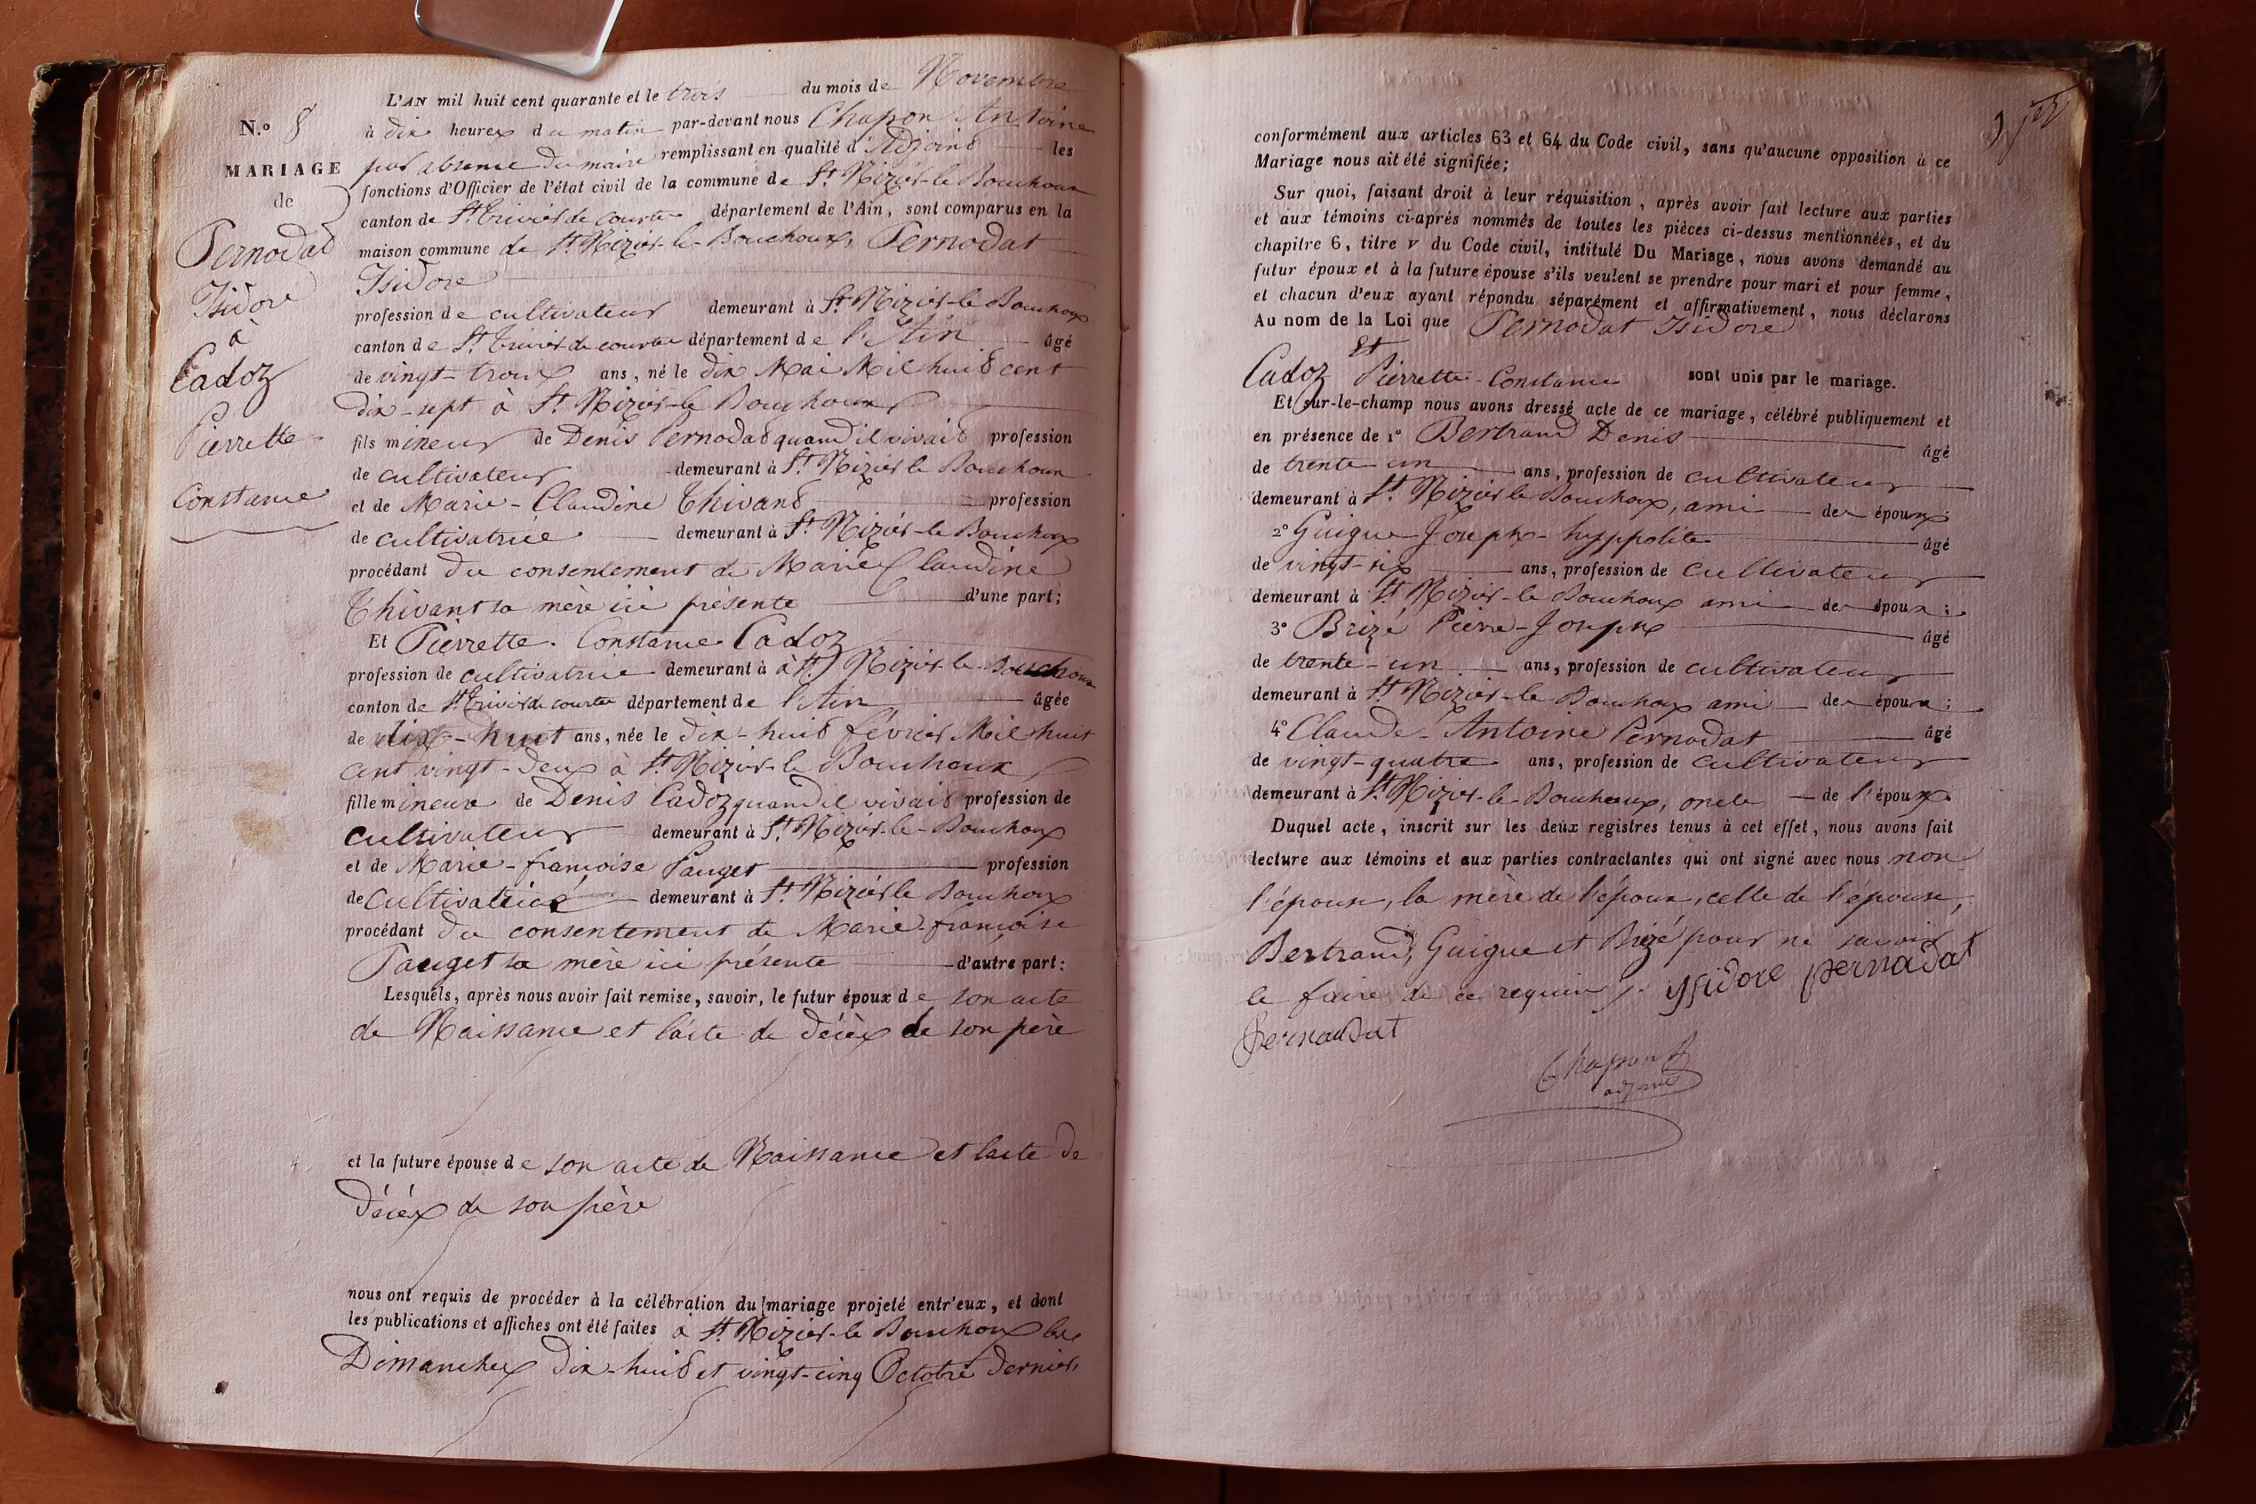 N.º 8
MARIAGE
de
Pernodat
Isidore
à
Cadoz
Pierrette-
Constance
L'AN mil huit cent quarante et le trois du mois de Novembre
à dix heures du matin par-devant nous Chapon Antoine
par absence du maire remplissant en qualité d'Adjoint les
fonctions d'Officier de l'état civil de la commune de St. Nizier-le-Bouchoux
canton de St. Trivier de courtes département de l'Ain, sont comparus en la
maison commune de St. Nizier-le-Bouchoux, Pernodat
Isidore
profession de cultivateur demeurant à St. Nizier-le Bouchoux
canton de St. Trivier de courtes département de l'Ain âgé
de vingt-trois ans, né le dix Mai Mil huit cent
dix-sept à St. Nizier-le Bouchoux
fils mineur de Denis Pernodat quand il vivait profession
de cultivateur demeurant à St. Nizier le Bouchoux
et de Marie-Claudine Thivant profession
de cultivatrice demeurant à St. Nizier-le Bouchoux
procédant du consentement de Marie Claudine
Thivant sa mère ici présente d'une part;
Et Pierrette-Constance Cadoz
profession de cultivatrice demeurant à à St. Nizier-le-Bouchoux
canton de St. Trivier de courtes département de l'Ain âgée
de dix-huit ans, née le dix-huit février Mil huit
cent vingt-deux à St. Nizier-le Bouchoux
fille mineure de Denis Cadoz quand il vivait profession de
cultivateur demeurant à St. Nizier-le-Bouchoux
et de Marie-françoise Pauget profession
de Cultivatrice demeurant à St. Nizier le Bouchoux
procédant du consentement de Marie-françoise
Pauget sa mère ici présente d'autre part:
Lesquels, après nous avoir fait remise, savoir, le futur époux de son acte
de Naissance et l'acte de décès de son père
et la future épouse de son acte de Naissance et l'acte de
décès de son père
nous ont requis de procéder à la célébration du mariage projeté entr'eux, et dont
les publications et affiches ont été faites à St. Nizier-le Bouchoux les
Dimanches dix-huit et vingt-cinq Octobre dernier,
conformément aux articles 63 et 64 du Code civil, sans qu'aucune opposition à ce
Mariage nous ait été signifiée;
Sur quoi, faisant droit à leur réquisition, après avoir fait lecture aux parties
et aux témoins ci-après nommés de toutes les pièces ci-dessus mentionnées, et du
chapitre 6, titre V du Code civil, intitulé Du Mariage, nous avons demandé au
futur époux et à la future épouse s'ils veulent se prendre pour mari et pour femme,
et chacun d'eux ayant répondu séparément et affirmativement, nous déclarons
Au nom de la Loi que Pernodat Isidore
Et
Cadoz Pierrette-Constance sont unis par le mariage.
Et sur-le-champ nous avons dressé acte de ce mariage, célébré publiquement et
en présence de 1º Bertrand Denis âgé
de trente-un ans, profession de cultivateur
demeurant à St. Nizier le Bouchoux, ami des époux;
2º Guigue Joseph-hyppolite âgé
de vingt-six ans, profession de cultivateur
demeurant à St. Nizier-le Bouchoux ami des époux;
3º Brizé Pierre-Joseph âgé
de trente-un ans, profession de cultivateur
demeurant à St. Nizier-le Bouchoux ami des époux;
4º Claude-Antoine Pernodat âgé
de vingt-quatre ans, profession de cultivateur
demeurant à St. Nizier-le Bouchoux, oncle de l'époux
Duquel acte, inscrit sur les deux registres tenus à cet effet, nous avons fait
lecture aux témoins et aux parties contractantes qui ont signé avec nous non
l'épouse, la mère de l'époux, celle de l'épouse,
Bertrand, Guigue et Brizé pour ne savoir
le faire de ce requis. ysidore pernadat
Pernaudat
Chapon
adjoint